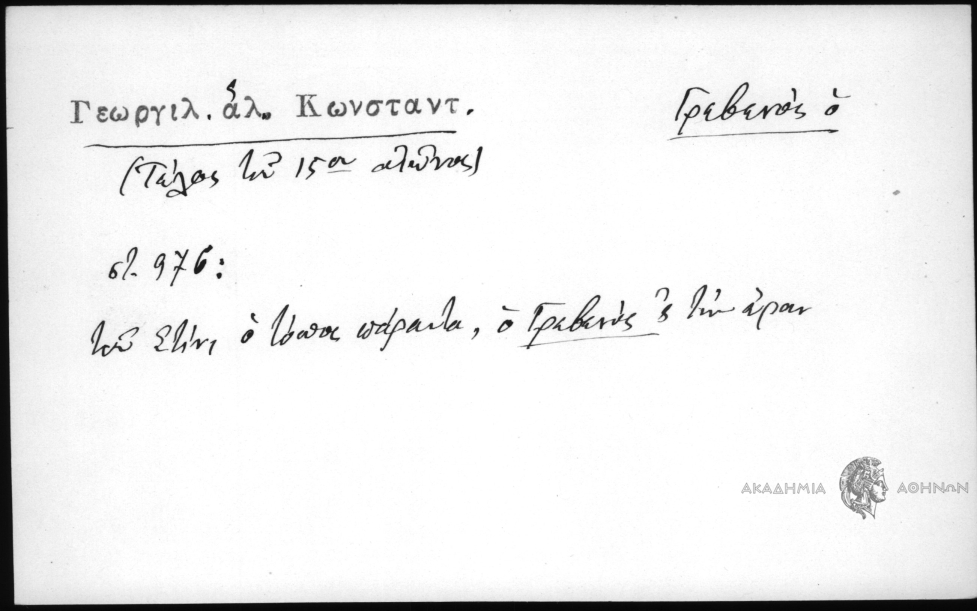 Γεωργιλ. ἁλ. Κωνσταντ.
Γρεβενὸς ὁ
(Τέλος τοῦ 15ου αἰῶνος)
στ. 976:
τοῦ Στίνι ὁ τόπος πάραυτα, ὁ Γρεβενὸς τὴν
ΑΚΑΔΗΜΙΑ ΑΘΗΝΩΝ